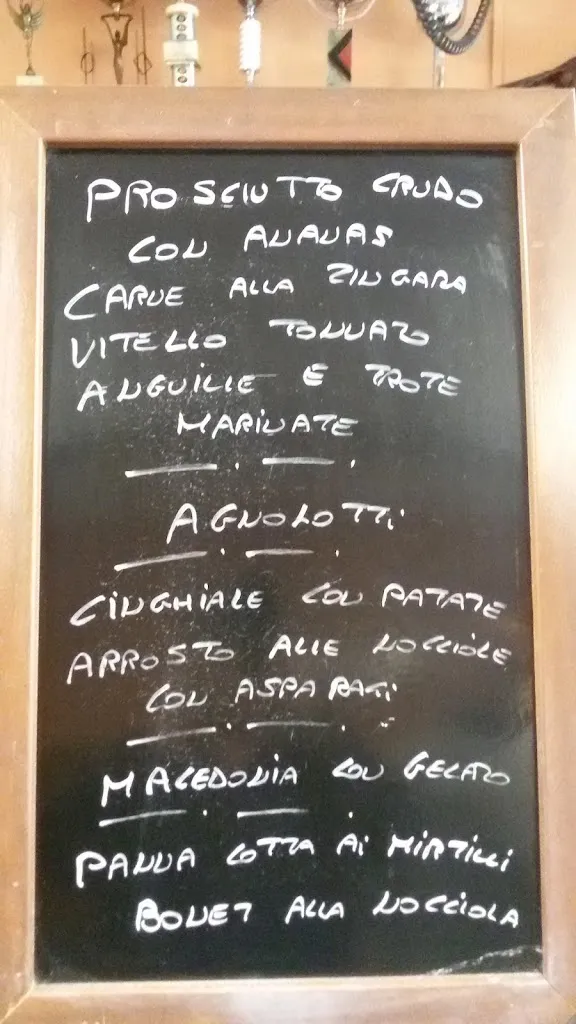 PROSCIUTTO CRUDO
CON ANANAS
CARNE ALLA ZINGARA
VITELLO TONNATO
ANGUILLE E TROTE
MARINATE
AGNOLOTTi
CiNGHIALE CON PATATE
ARROSTO ALLE NOCCIOLE
CON ASPARAGi
MACEDONIA CON GELATO
PANNA COTTA Ai MIRTILLi
BONET ALLA NOCCIOLA